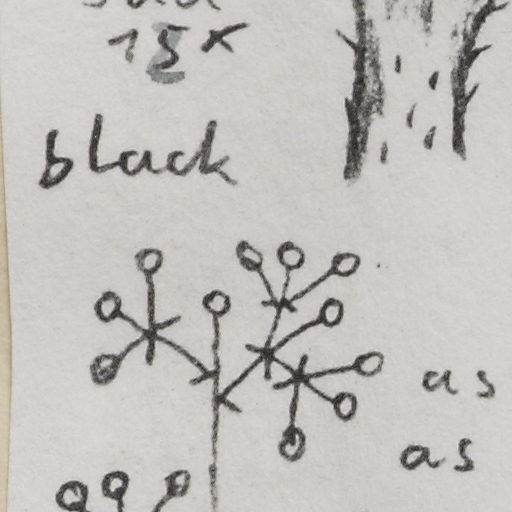 15x
black
as
as